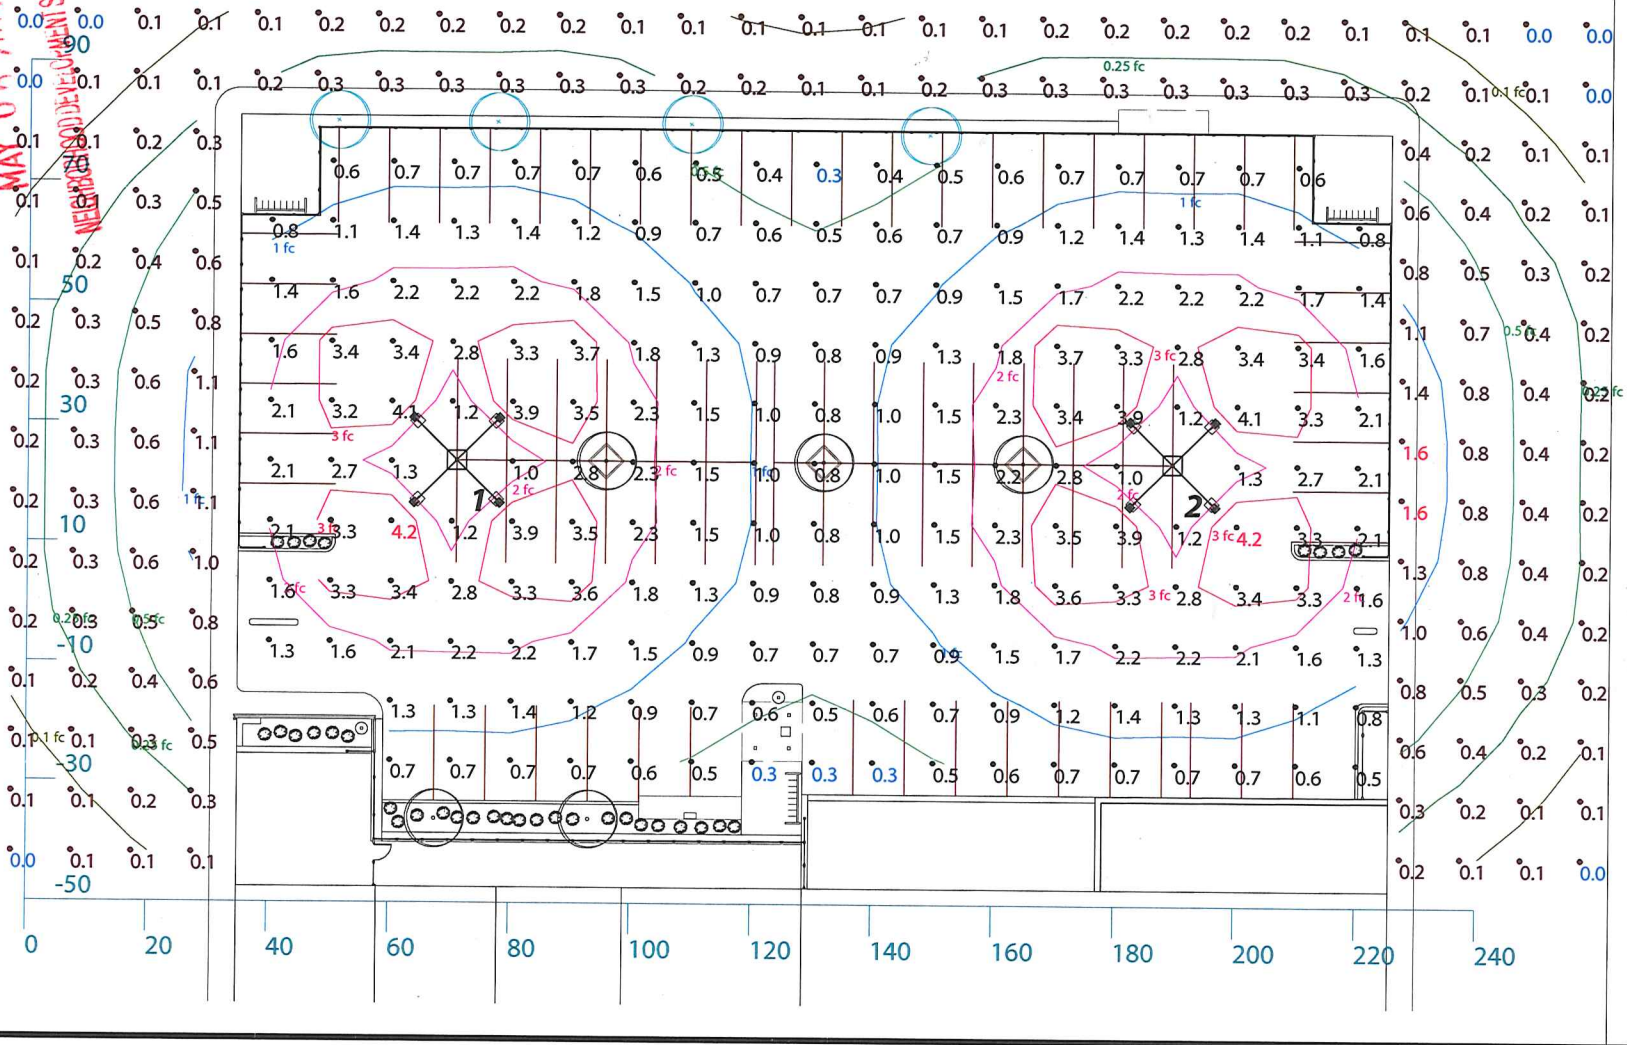 0.0 0.0 0.1 0.1 0.1 0.2 0.2 0.2 0.2 0.2 0.1 0.1 0.1 0.1 0.1 0.1 0.1 0.2 0.2 0.2 0.2 0.2 0.1 0.1 0.1 0.0 0.0
90
0.25 fc
0.0 0.1 0.1 0.1 0.2 0.3 0.3 0.3 0.3 0.3 0.3 0.2 0.2 0.1 0.1 0.2 0.3 0.3 0.3 0.3 0.3 0.3 0.3 0.2 0.1 0.1 fc 0.1 0.0
MAY
NEIGHBORHOOD DEVELOPMENT S
0.1 0.1 0.2 0.3 0.6 0.7 0.7 0.7 0.7 0.6 0.5 0.4 0.3 0.4 0.5 0.6 0.7 0.7 0.7 0.7 0.6 0.4 0.2 0.1 0.1
70
1 fc
0.1 0.1 0.3 0.5 0.8 1.1 1.4 1.3 1.4 1.2 0.9 0.7 0.6 0.5 0.6 0.7 0.9 1.2 1.4 1.3 1.4 1.1 0.8 0.6 0.4 0.2 0.1
1 fc
0.1 0.2 0.4 0.6 1.4 1.6 2.2 2.2 2.2 1.8 1.5 1.0 0.7 0.7 0.7 0.9 1.5 1.7 2.2 2.2 2.2 1.7 1.4 0.8 0.5 0.3 0.2
50
0.2 0.3 0.5 0.8 1.6 3.4 3.4 2.8 3.3 3.7 1.8 1.3 0.9 0.8 0.9 1.3 1.8 3.7 3.3 3 fc 2.8 3.4 3.4 1.6 1.1 0.7 0.5 fc 0.4 0.2
2 fc
0.2 0.3 0.6 1.1 2.1 3.2 4.1 1.2 3.9 3.5 2.3 1.5 1.0 0.8 1.0 1.5 2.3 3.4 3.9 1.2 4.1 3.3 2.1 1.4 0.8 0.4 0.2 0.25 fc
30
3 fc
0.2 0.3 0.6 1.1 2.1 2.7 1.3 1.0 2.8 2.3 2 fc 1.5 1.0 1 fc 0.8 1.0 1.5 2.2 2.8 1.0 1.3 2.7 2.1 1.6 0.8 0.4 0.2
1 2 fc 2 fc 2
0.2 0.3 0.6 1.1 1 fc 2.1 3.3 3 fc 4.2 1.2 3.9 3.5 2.3 1.5 1.0 0.8 1.0 1.5 2.3 3.5 3.9 1.2 3 fc 4.2 3.3 2.1 1.6 0.8 0.4 0.2
10
0.2 0.3 0.6 1.0 1.6 2 fc 3.3 3.4 2.8 3.3 3.6 1.8 1.3 0.9 0.8 0.9 1.3 1.8 3.6 3.3 3 fc 2.8 3.4 3.3 2 fc 1.6 1.3 0.8 0.4 0.2
0.2 0.25 fc 0.3 0.5 0.5 fc 0.8 1.3 1.6 2.1 2.2 2.2 1.7 1.5 0.9 0.7 0.7 0.7 0.9 1.5 1.7 2.2 2.2 2.1 1.6 1.3 1.0 0.6 0.4 0.2
-10
0.1 0.2 0.4 0.6 1.3 1.3 1.4 1.2 0.9 0.7 0.6 0.5 0.6 0.7 0.9 1.2 1.4 1.3 1.3 1.1 0.8 0.8 0.5 0.3 0.2
0.1 0.1 fc 0.1 0.3 0.25 fc 0.5 0.7 0.7 0.7 0.7 0.6 0.5 0.3 0.3 0.3 0.5 0.6 0.7 0.7 0.7 0.7 0.6 0.5 0.6 0.4 0.2 0.1
-30
0.1 0.1 0.2 0.3 0.3 0.2 0.1 0.1
0.0 0.1 0.1 0.1 0.2 0.1 0.1 0.0
-50
0 20 40 60 80 100 120 140 160 180 200 220 240